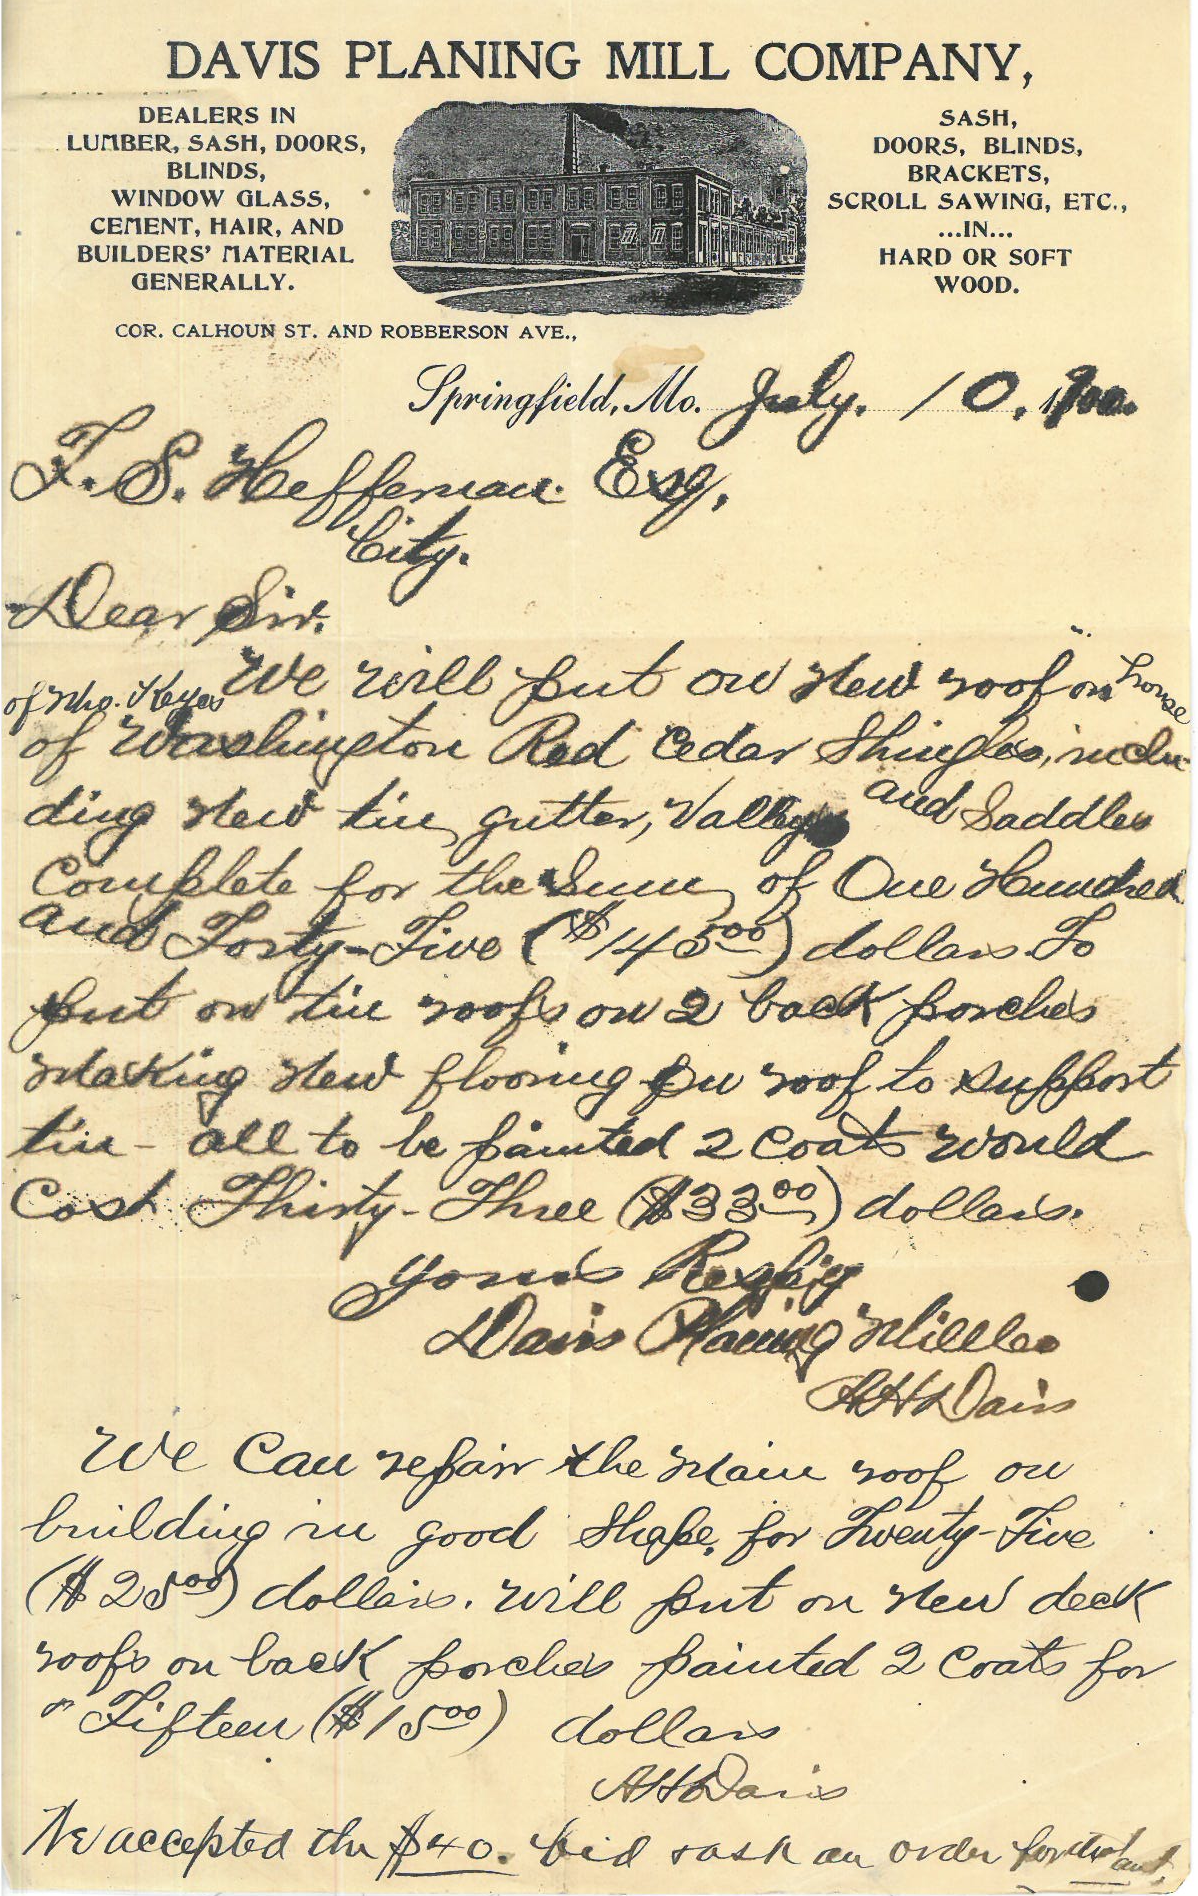 DAVIS PLANING MILL COMPANY,
DEALERS IN
LUMBER, SASH, DOORS,
BLINDS,
WINDOW GLASS,
CEMENT, HAIR, AND
BUILDERS' MATERIAL
GENERALLY.
SASH,
DOORS, BLINDS,
BRACKETS,
SCROLL SAWING, ETC.,
...IN...
HARD OR SOFT
WOOD.
COR. CALHOUN ST. AND ROBBERSON AVE.,
Springfield, Mo. July. 10. 1900.
F. S. Heffernan. Esq,
City.
Dear Sir.
We will put on New roof on house
of Mrs. Keyes
of Washington Red Cedar Shingles, inclu-
ding New tin gutter, Valleys and Saddles
Complete for the Sum of One Hundred
and Forty-Five ($145.00) dollars. To
put on tin roofs on 2 back porches
Making New flooring on roof to support
tin - all to be painted 2 Coats would
Cost Thirty-Three ($33.00) dollars.
Yours Respfy
Davis Planing Mill Co
AH Davis
We Can repair the Main roof on
building in good Shape, for Twenty-Five
($25.00) dollars. Will put on New deck
roofs on back porches painted 2 Coats for
Fifteen ($15.00) dollars
AH Davis
We accepted the $40. bid & ask an order for that amt.